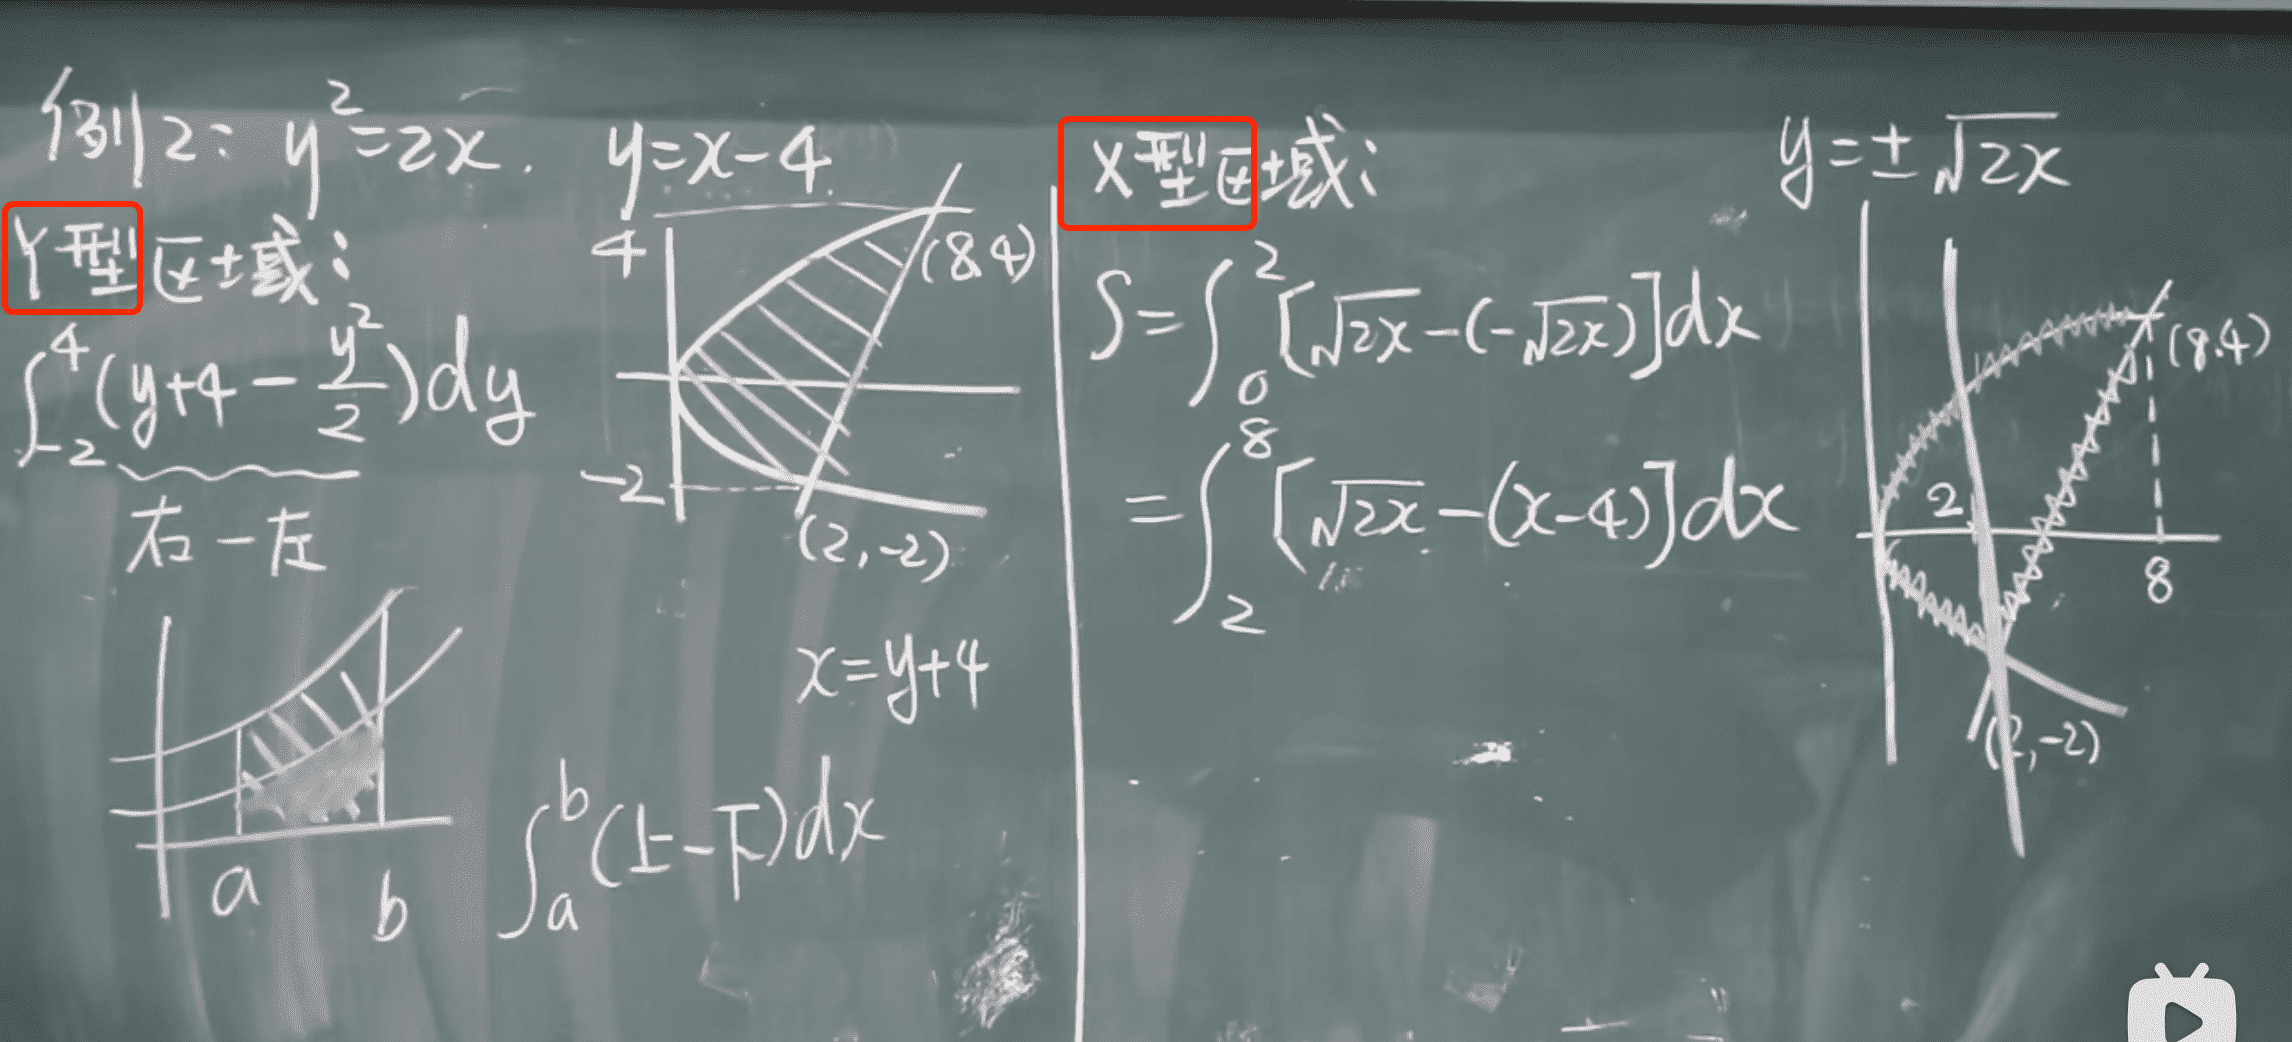 例2: y²=2x. y=x-4
Y型区域:
∫₋₂⁴(y+4-y²/2)dy
右-左
4
(8.4)
-2
(2,-2)
x=y+4
a
b
∫ₐᵇ(上-下)dx
X型区域:
y=±√2x
S=∫₀²[√2x-(-√2x)]dx
=∫₂⁸[√2x-(x-4)]dx
(8.4)
2
8
(2,-2)